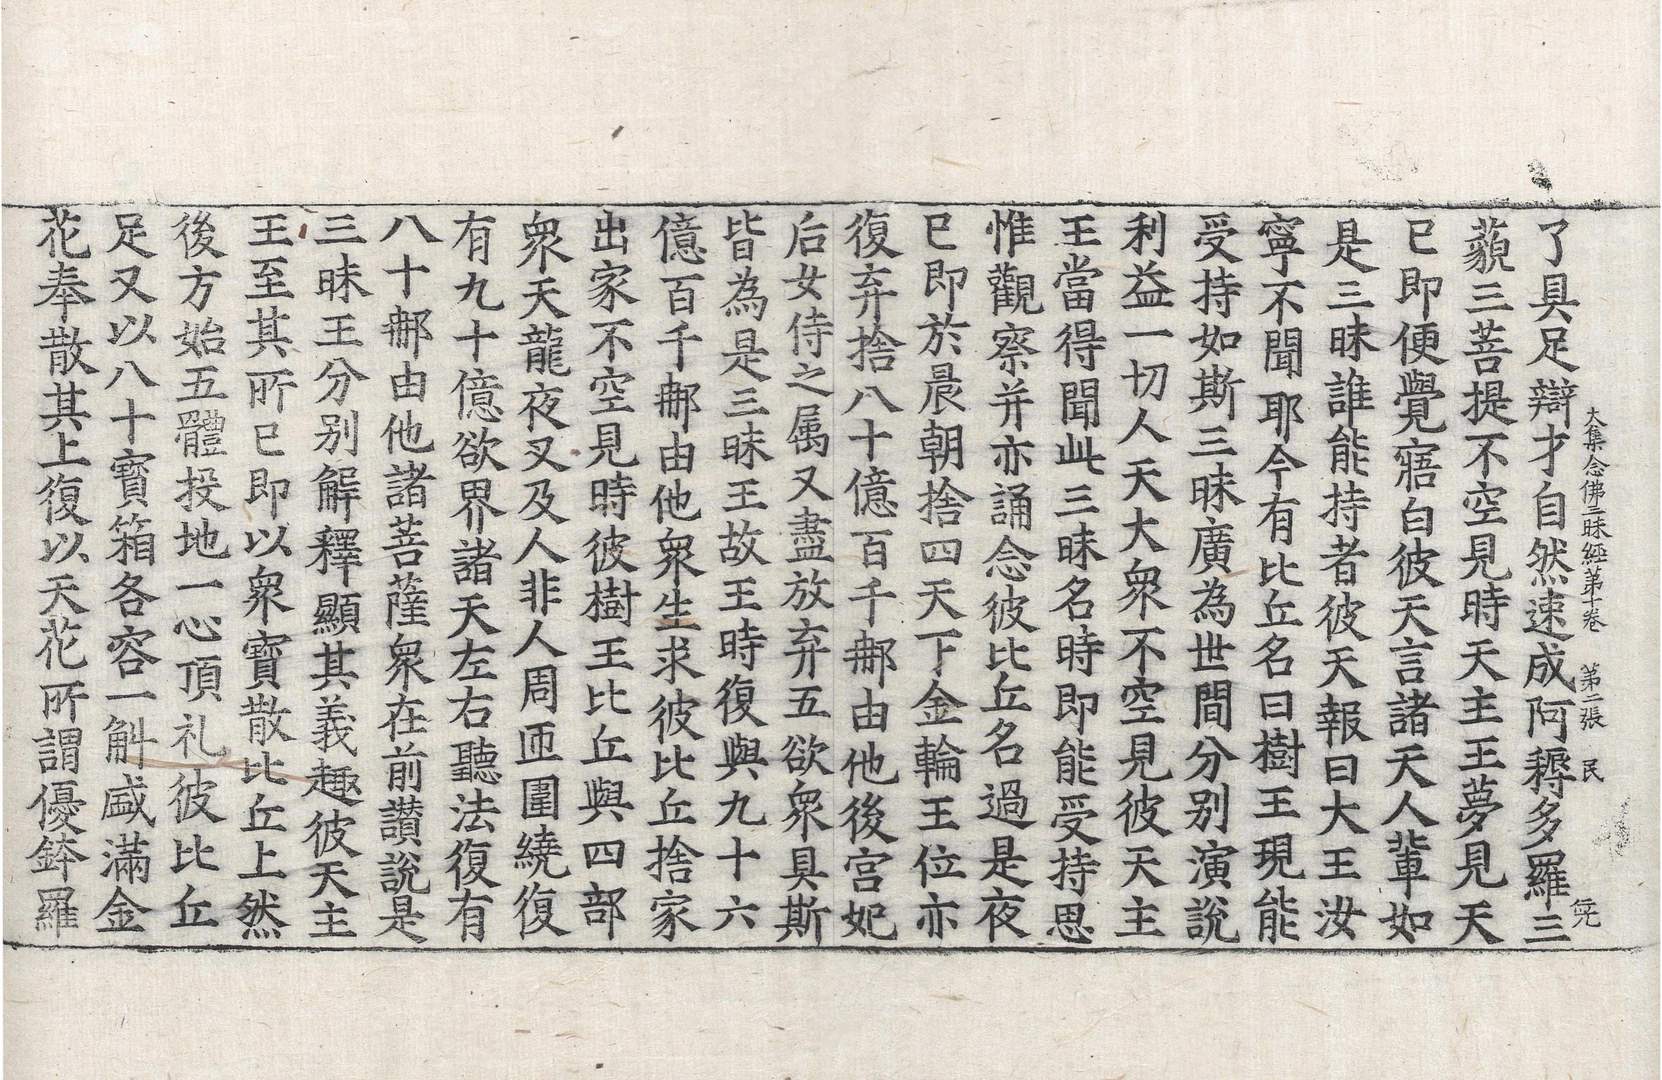 大集念佛三昧經第十卷　第二張　民
了具足辯才自然速成阿耨多羅三
藐三菩提不空見時天主王夢見天
已即便覺寤白彼天言諸天人輩如
是三昧誰能持者彼天報曰大王汝
寧不聞耶今有比丘名曰樹王現能
受持如斯三昧廣為世間分别演說
利益一切人天大衆不空見彼天主
王當得聞此三昧名時即能受持思
惟觀察并亦誦念彼比丘名過是夜
已即於晨朝捨四天下金輪王位亦
復弃捨八十億百千𨚗由他後宮妃
后女侍之属又盡放弃五欲衆具斯
皆為是三昧王故王時復與九十六
億百千𨚗由他衆生求彼比丘捨家
出家不空見時彼樹王比丘與四部
衆天龍夜叉及人非人周匝圍繞復
有九十億欲界諸天左右聽法復有
八十𨚗由他諸菩薩衆在前讃說是
三昧王分别解釋顯其義趣彼天主
王至其所已即以衆寶散比丘上然
後方始五體投地一心頂礼彼比丘
足又以八十寶箱各容一斛盛滿金
花奉散其上復以天花所謂優鉢羅